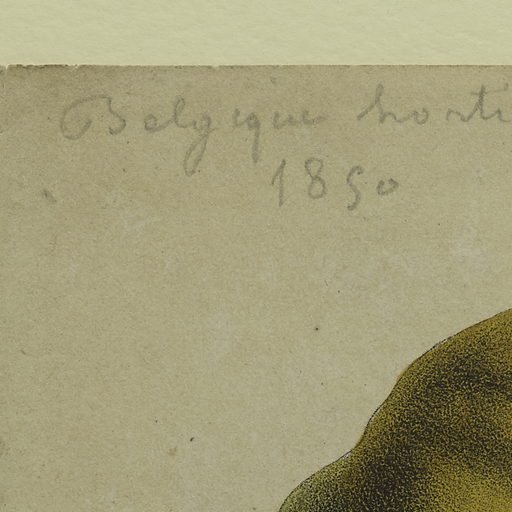 Belgique horti
1850